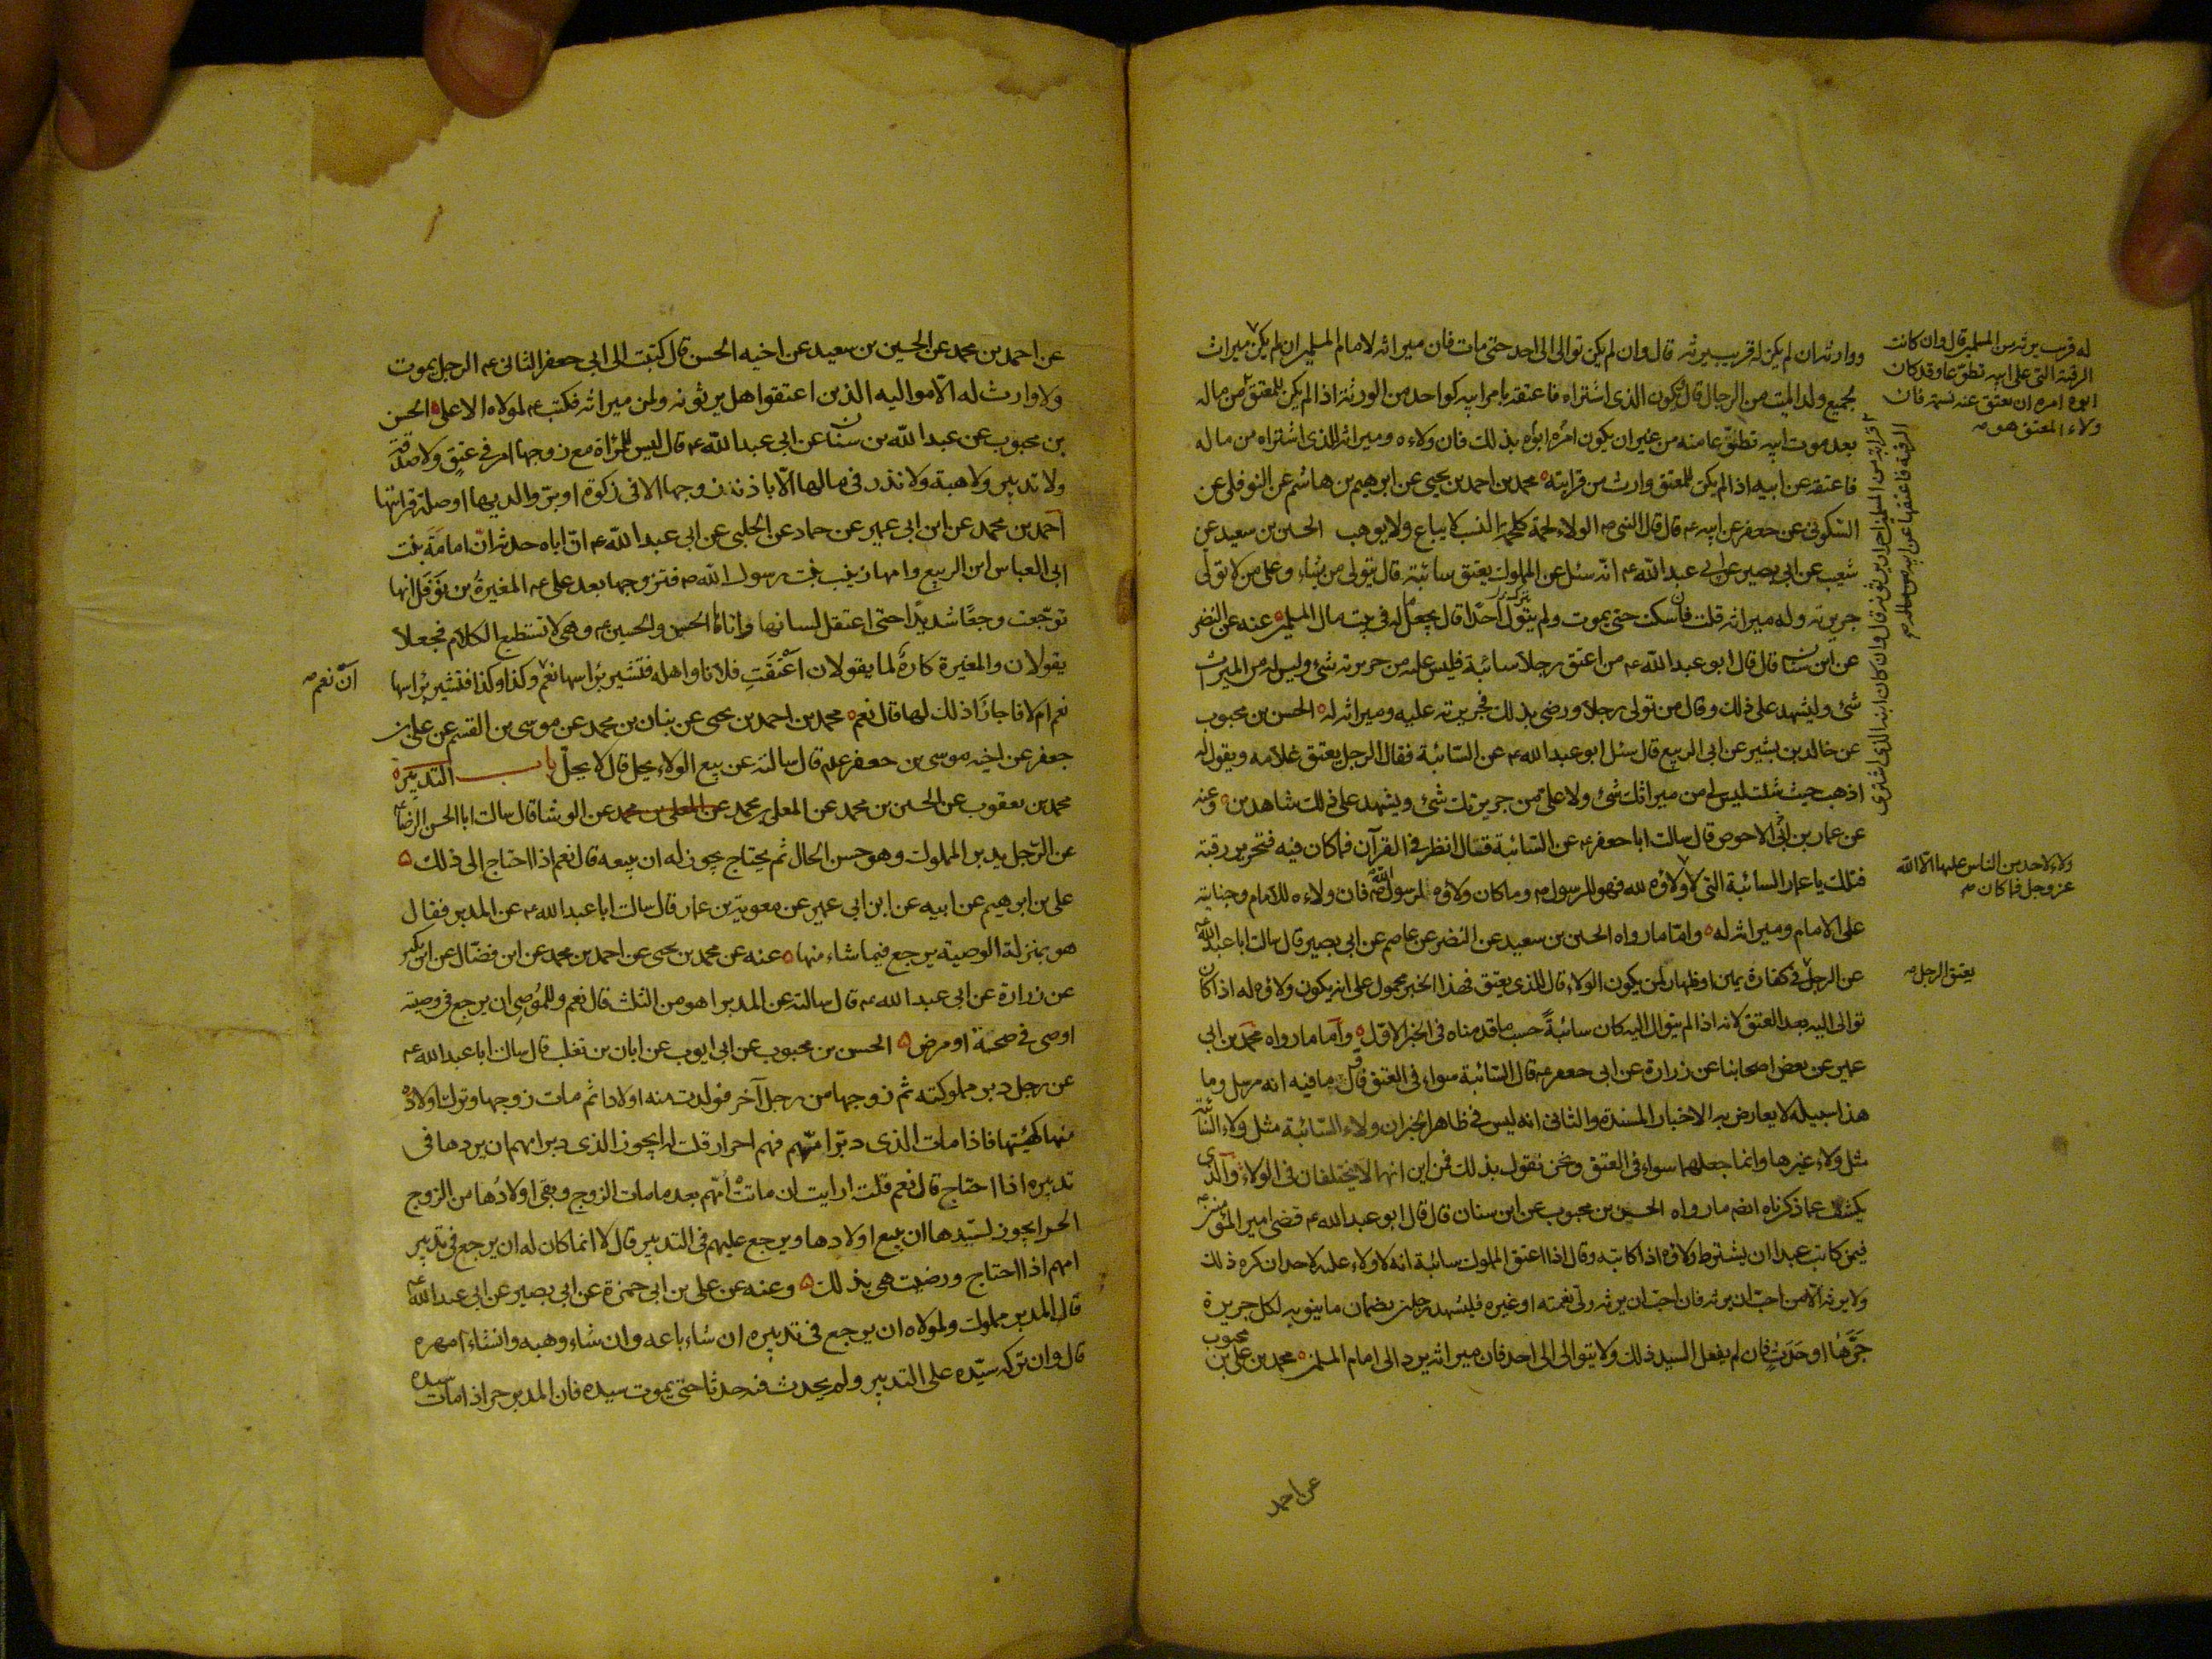 ووارثه ان لم يكن له قريب يرثه قال وان لم يكن توالى الى احد حتى مات فان ميراثه لامام المسلمين ان لم يكن ميراث
لجميع ولد الميت من الرجال قال ويكون الذى اشتراه فاعتقه بامر ابيه كواحد من الورثة اذا لم يكن للمعتق من ماله
بعد موت ابيه تطوعا منه من غير ان يكون امره ابوه بذلك فان ولاءه وميراثه للذى اشتراه من ماله
فاعتقه عن ابيه اذا لم يكن للمعتق وارث من قرابته محمد بن احمد بن يحيى عن ابرهيم بن هاشم عن النوفلى عن
السكونى عن جعفر عن ابيه ع قال قال النبى ص الولاء لحمة كلحمة النسب لا يباع ولا يوهب الحسين بن سعيد عن
شعيب عن ابى بصير عن ابى عبد الله ع انه سئل عن المملوك يعتق سائبة قال يتولى من شاء وعلى من لا تولى
جريرته وله ميراثه قلت فان سكت حتى يموت ولم يتول احدا قال يجعل ماله فى بيت مال المسلمين عنه عن النضر
عن ابن سنان قال قال ابو عبد الله ع من اعتق رجلا سائبة فليس عليه من جريرته شئ وليس له من الميراث
شئ وليشهد على ذلك وقال من تولى رجلا ورضى بذلك فجريرته عليه وميراثه له الحسن بن محبوب
عن خالد بن بشير عن ابى الربيع قال سئل ابو عبد الله ع عن السائبة فقال الرجل يعتق غلامه ويقول له
اذهب حيث شئت ليس لى من ميراثك شئ ولا على من جريرتك شئ ويشهد على ذلك شاهدين وعنه
عن عمار بن ابى الاحوص قال سالت ابا جعفر ع عن السائبة فقال انظر فى القرآن فما كان فيه فتحرير رقبة
فتلك يا عمار السائبة التى لا ولاؤه لله فهو للرسول ص وما كان ولاؤه لرسول الله ص فان ولاءه للامام وجنايته
على الامام وميراثه له واما ما رواه الحسين بن سعيد عن النضر عن عاصم عن ابى بصير قال سالت ابا عبد الله ع
عن الرجل فى كفارة يمين او ظهار لمن يكون الولاء قال للذى يعتق فهذا الخبر محمول على انه يكون ولاؤه له اذا كان
توالى اليه بعد العتق لانه اذا لم يتوال اليه كان سائبة حسب ما قدمناه فى الخبر الاول واما ما رواه محمد بن ابى
عمير عن بعض اصحابنا عن زرارة عن ابى جعفر ع قال السائبة سواء فى العتق فاول ما فيه انه مرسل وما
هذا سبيله لا يعارض به الاخبار المسندة والثانى انه ليس فى ظاهر الخبر ان ولاء السائبة مثل ولاء
مثل ولاء غيرها وانما جعلهما سواء فى العتق ونحن نقول بذلك فمن اين انهما لا يختلفان فى الولاء والذى
يكشف عما ذكرناه ايضا ما رواه الحسن بن محبوب عن ابن سنان قال قال ابو عبد الله ع قضى امير المؤمنين ع
فيمن كاتب عبدا ان يشترط ولاؤه اذا كاتبه وقال اذا اعتق المملوك سائبة انه لا ولاء عليه لاحد ان كره ذلك
ولا يرثه الا من احب ان يرثه فان احب ان يرثه ولى نعمته او غيره فليشهد رجلين بضمان ما ينوبه لكل جريرة
جرها او حدث فان لم يفعل السيد ذلك ولا يتوالى الى احد فان ميراثه يرد الى امام المسلمين محمد بن على بن محبوب
عن احمد
له قريب يرثه من المسلمين قال وان كانت
الرقبة التى على ابيه تطوعا وقد كان
ابوه امره ان يعتق عنه نسمة فان
ولاء المعتق هو ص
ولاء لاحد من الناس عليها الا الله
عز وجل فما كان ص
يعتق الرجل ص
عن احمد بن محمد عن الحسين بن سعيد عن اخيه الحسن قال كتبت الى ابى جعفر الثانى ع الرجل يموت
ولا وارث له الا مواليه الذين اعتقوا هل يرثونه ولمن ميراثه فكتب ع لمولاه الاعلى الحسن
بن محبوب عن عبد الله بن سنان عن ابى عبد الله ع قال ليس للمراة مع زوجها امر فى عتق ولا صدقة
ولا تدبير ولا هبة ولا نذر فى مالها الا باذن زوجها الا فى زكوة او بر والديها او صلة قرابتها
احمد بن محمد عن ابن ابى عمير عن حماد عن الحلبى عن ابى عبد الله ع ان اباه حدثه ان امامة بنت
ابى العباس ابن الربيع وامها زينب بنت رسول الله ص فتزوجها بعد على ع المغيرة بن نوفل انها
توجعت وجعا شديدا حتى اعتقل لسانها واتاها الحسن والحسين ع وهى لا تستطيع الكلام فجعلا
يقولان والمغيرة كاره لما يقولان اعتقت فلانا واهله فتشير براسها نعم وكذا وكذا فتشير براسها
نعم ام لا فاجازا ذلك لها قال نعم محمد بن احمد بن يحيى عن بنان بن محمد عن موسى بن القسم عن على بن
جعفر عن اخيه موسى بن جعفر ع قال سالته عن بيع الولاء يحل قال لا يحل باب التدبير
محمد بن يعقوب عن الحسين بن محمد عن المعلى بن محمد عن الوشا قال سالت ابا الحسن الرضا ع
عن الرجل يدبر المملوك وهو حسن الحال ثم يحتاج يجوز له ان يبيعه قال نعم اذا احتاج الى ذلك
على بن ابرهيم عن ابيه عن ابن ابى عمير عن معوية بن عمار قال سالت ابا عبد الله ع عن المدبر فقال
هو بمنزلة الوصية يرجع فيما شاء منها عنه عن محمد بن يحيى عن احمد بن محمد عن ابن فضال عن ابن بكير
عن زرارة عن ابى عبد الله ع قال سالته عن المدبر اهو من الثلث قال نعم وللموصى ان يرجع فى وصيته
اوصى فى صحة او مرض الحسن بن محبوب عن ابى ايوب عن ابان بن تغلب قال سالت ابا عبد الله ع
عن رجل دبر مملوكته ثم زوجها من رجل آخر فولدت منه اولادا ثم مات زوجها وترك اولاده
منها كهيئتها فاذا مات الذى دبر امهم فهم احرار قلت له ايجوز للذى دبر امهم ان يردها فى
تدبيره اذا احتاج قال نعم قلت ارايت ان ماتت امهم بعد ما مات الزوج وبقى اولادها من الزوج
الحر ايجوز لسيدها ان يبيع اولادها ويرجع عليهم فى التدبير قال لا انما كان له ان يرجع فى تدبير
امهم اذا احتاج ورضيت هى بذلك وعنه عن على بن ابى حمزة عن ابى بصير عن ابى عبد الله ع
قال المدبر مملوك ولمولاه ان يرجع فى تدبيره ان شاء باعه وان شاء وهبه وان شاء امهره
قال وان تركه سيده على التدبير ولم يحدث فيه حدثا حتى يموت سيده فان المدبر حر اذا مات سيده